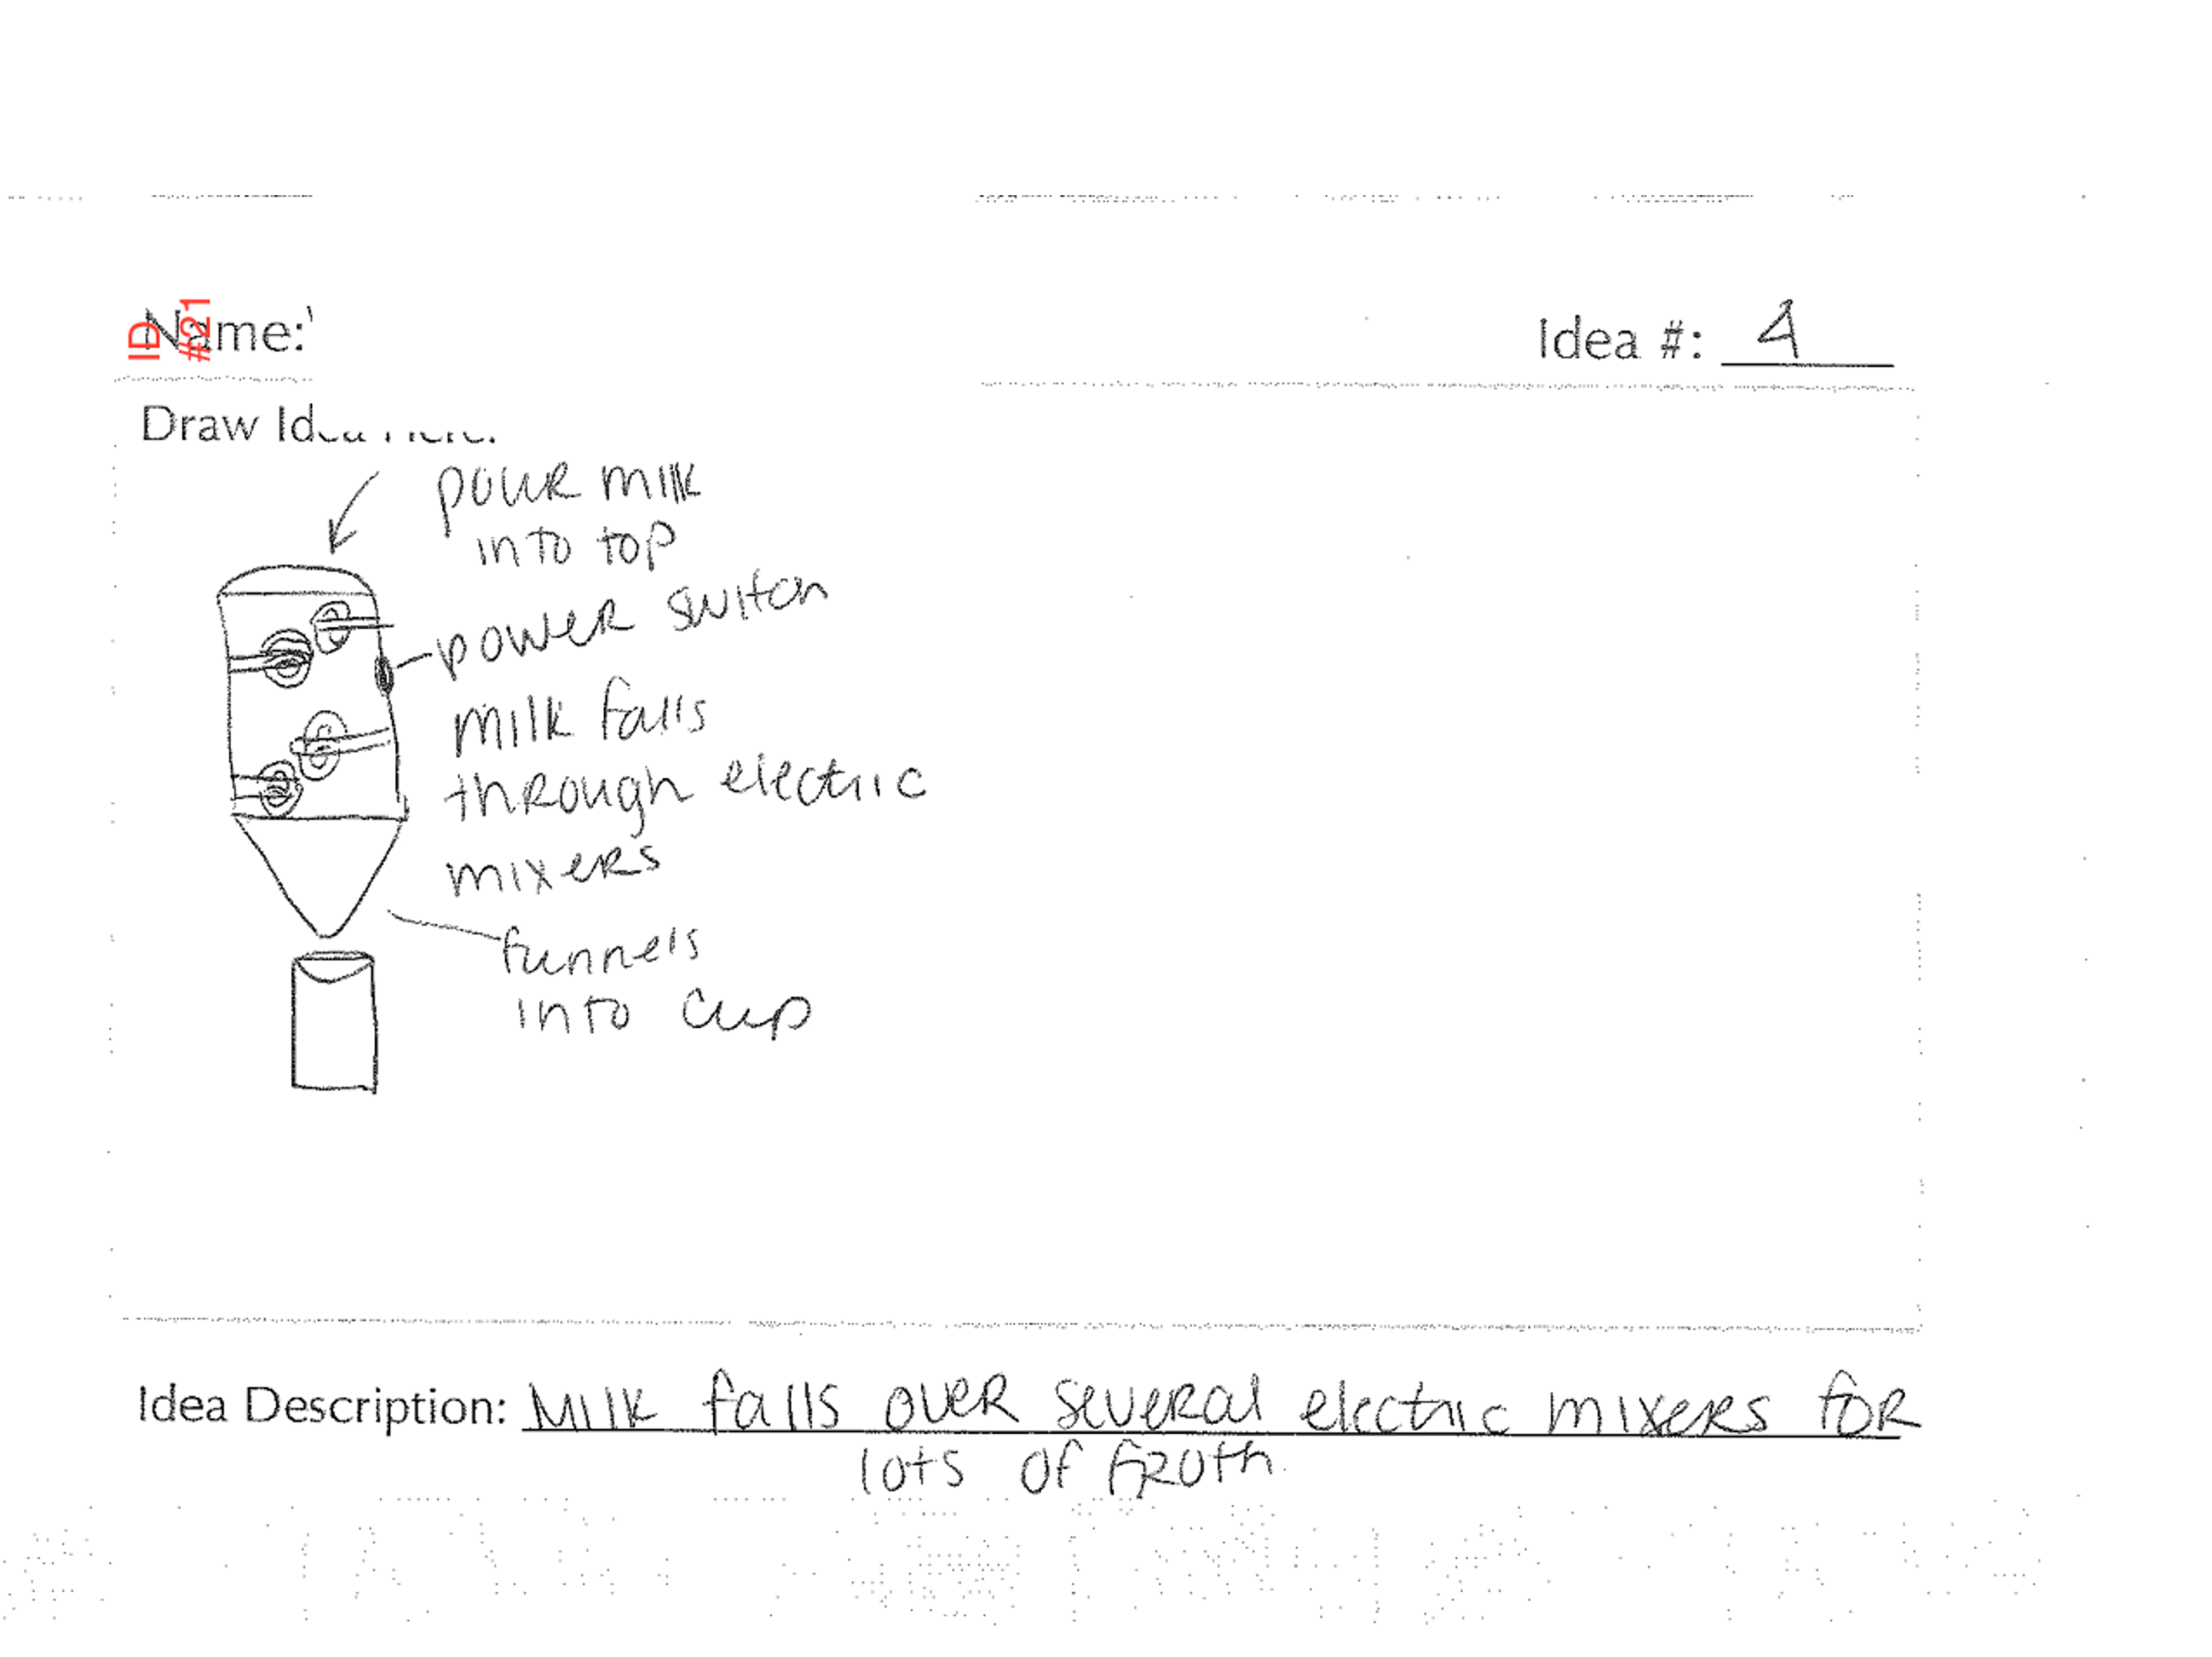 ID
#21
Name:
Idea #: 4
Draw Idea Here:
pour milk
into top
power switch
milk falls
through electric
mixers
funnels
into cup
Idea Description: Milk falls over several electric mixers for
lots of froth